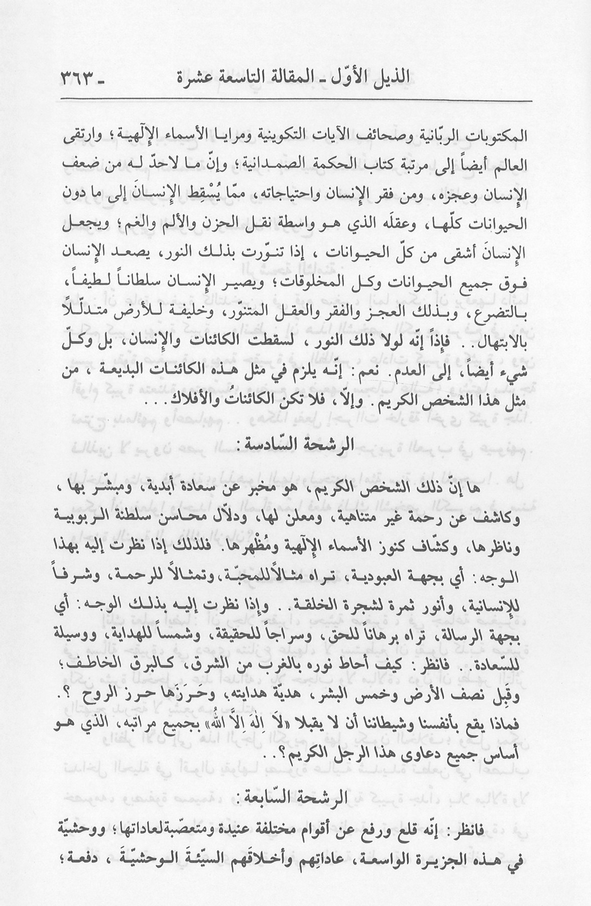 الذيل الأوّل - المقالة التاسعة عشرة - ٣٦٣
المكتوبات الربّانية وصحائف الآيات التكوينية ومرايا الأسماء الإلٓهية؛ وارتقى
العالم أيضاً إلى مرتبة كتاب الحكمة الصمدانية؛ وإنّ ما لاحدّ له من ضعف
الإنسان وعجزه، ومن فقر الإنسان واحتياجاته، ممّا يُسْقِط الإنسانَ إلى ما دون
الحيوانات كلّها، وعقلَه الذي هو واسطة نقل الحزن والألم والغم؛ ويجعل
الإنسانَ أشقى من كلّ الحيوانات ، إذا تنوّرت بذلك النور، يصعد الإنسان
فوق جميع الحيوانات وكل المخلوقات؛ ويصير الإنسان سلطاناً لطيفاً،
بالتضرع، وبذلك العجز والفقر والعقل المتنوّر، وخليفة للأرض متدلّلاً
بالابتهال.. فإذاً إنّه لولا ذلك النور ، لسقطت الكائنات والإنسان، بل وكلّ
شيء أيضاً، إلى العدم. نعم: إنّه يلزم في مثل هذه الكائنات البديعة ، من
مثل هذا الشخص الكريم. وإلاّ، فلا تكن الكائناتُ والأفلاك...
الرشحة السّادسة:
ها إنّ ذلك الشخص الكريم، هو مخبر عن سعادة أبدية، ومبشّر بها ،
وكاشف عن رحمة غير متناهية، ومعلن لها، ودلّال محاسن سلطنة الربوبية
وناظرها، وكشّاف كنوز الأسماء الإلٓهية ومُظْهرها. فلذلك إذا نظرت إليه بهذا
الوجه: أي بجهة العبودية، تراه مثالاً للمحبّة، وتمثالاً للرحمة، وشرفاً
للإنسانية، وأنور ثمرة لشجرة الخلقة.. وإذا نظرت إليه بذلك الوجه: أي
بجهة الرسالة، تراه برهاناً للحق، وسراجاً للحقيقة، وشمساً للهداية، ووسيلة
للسّعادة.. فانظر: كيف أحاط نوره بالغرب من الشرق، كالبرق الخاطف؛
وقبِل نصف الأرض وخمس البشر، هديّة هدايته؛ وحَرزها حرز الروح ؟.
فماذا يقع بأنفسنا وشيطاننا أن لا يقبلا «لَا إلٰهَ إلاَّ اللهُ» بجميع مراتبه، الذي هو
أساس جميع دعاوى هذا الرجل الكريم؟..
الرشحة السّابعة:
فانظر: إنّه قلع ورفع عن أقوام مختلفة عنيدة ومتعصّبة لعاداتها؛ ووحشيّة
في هذه الجزيرة الواسعة، عاداتِهم وأخلاقَهم السيّئةَ الوحشيّةَ ، دفعة؛